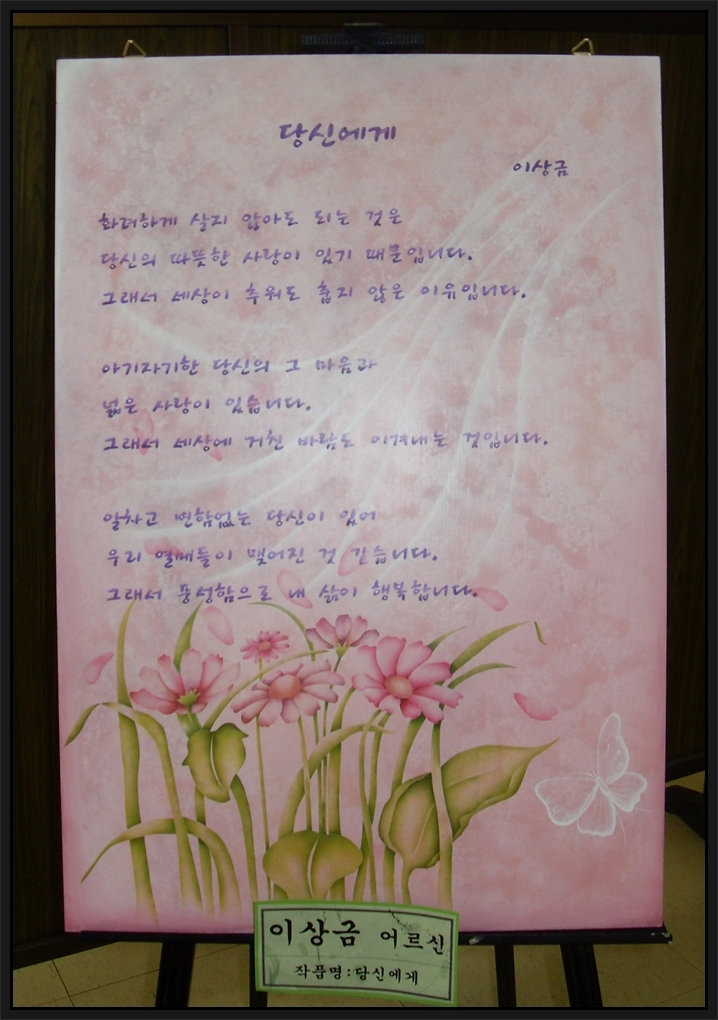 당신에게
이상금
화려하게 살지 않아도 되는 것은
당신의 따뜻한 사랑이 있기 때문입니다.
그래서 세상이 추워도 춥지 않은 이유입니다.
아기자기한 당신의 그 마음과
넓은 사랑이 있습니다.
그래서 세상에 거친 바람도 이겨내는 것입니다.
알차고 변함없는 당신이 있어
우리 열매들이 맺어진 것 같습니다.
그래서 풍성함으로 내 삶이 행복합니다.
이상금 어르신
작품명:당신에게